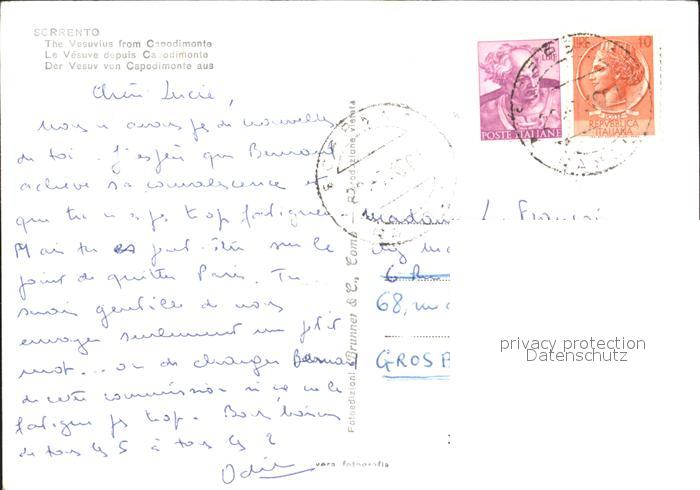 SORRENTO
The Vesuvius from Capodimonte
Le Vésuve depuis Capodimonte
Der Vesuv von Capodimonte aus
Chère Lucie,
Nous n'avons pas de nouvelles
de toi. J'espère que Bernard
achève sa convalescence et
que tu n'es pas trop fatiguée.
Mais tu es peut-être sur le
point de quitter Paris. Tu
serais gentille de nous
envoyer seulement un petit
mot... ou de charger Bernard
de cette commission si ça ne le
fatigue pas trop. Bons baisers
de tous les 5 à tous les 2
Odile
Fotoedizioni Brunner & C., Como — Riproduzione vietata
vera fotografia
LIRE
POSTE ITALIANE
LIRE 10
REPVBBLICA
ITALIANA
Madame L.
68, rue
GROS
privacy protection
Datenschutz